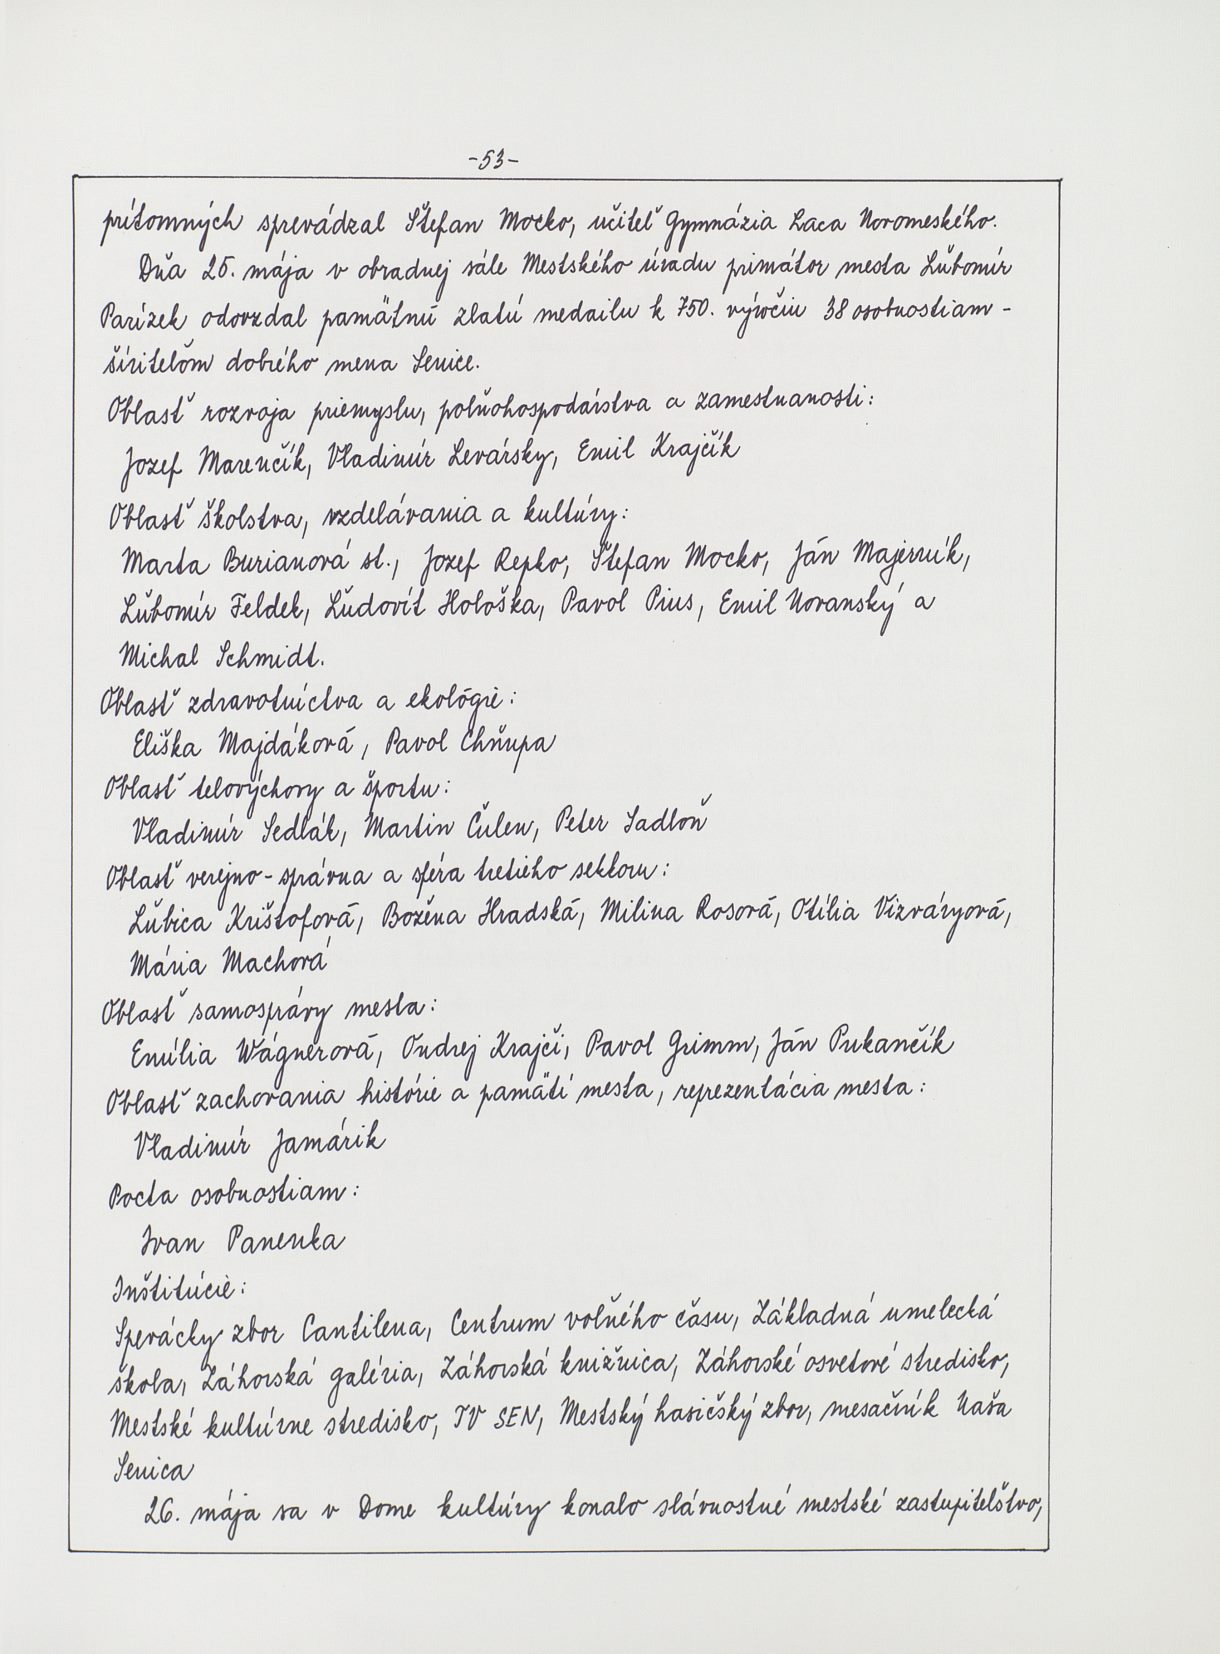 -53-
prítomných sprevádzal Štefan Mocko, učiteľ Gymnázia Laca Novomeského.
Dňa 25. mája v obradnej sále Mestského úradu primátor mesta Ľubomír
Parízek odovzdal pamätnú zlatú medailu k 750. výročiu 38 osobnostiam -
šíriteľom dobrého mena Senice.
Oblasť rozvoja priemyslu, poľnohospodárstva a zamestnanosti:
Jozef Marenčík, Vladimír Levársky, Emil Krajčík
Oblasť školstva, vzdelávania a kultúry:
Marta Burianová st., Jozef Repko, Štefan Mocko, Ján Majerník,
Ľubomír Feldek, Ľudovít Hološka, Pavol Pius, Emil Novanský a
Michal Schmidt.
Oblasť zdravotníctva a ekológie:
Eliška Majdáková, Pavol Chňupa
Oblasť telovýchovy a športu:
Vladimír Sedlák, Martin Čulen, Peter Sadloň
Oblasť verejno-správna a sféra tretieho sektoru:
Ľubica Krištofová, Božena Hradská, Milina Rosová, Otília Vizváryová,
Mária Machová
Oblasť samosprávy mesta:
Emília Wágnerová, Ondrej Krajči, Pavol Grimm, Ján Pukančík
Oblasť zachovania histórie a pamäti mesta, reprezentácia mesta:
Vladimír Jamárik
Pocta osobnostiam:
Ivan Panenka
Inštitúcie:
Spevácky zbor Cantilena, Centrum voľného času, Základná umelecká
škola, Záhorská galéria, Záhorská knižnica, Záhorské osvetové stredisko,
Mestské kultúrne stredisko, TV SEN, Mestský hasičský zbor, mesačník Naša
Senica
26. mája sa v Dome kultúry konalo slávnostné mestské zastupiteľstvo,